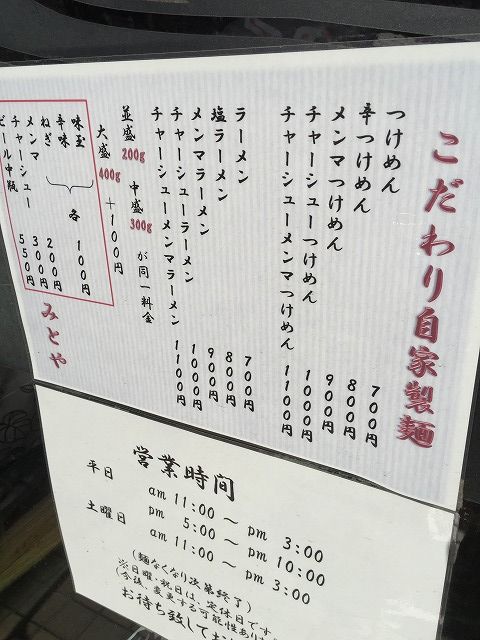 こだわり自家製麺
つけめん 700円
辛つけめん 800円
メンマつけめん 900円
チャーシューつけめん 1000円
チャーシューメンマつけめん 1100円
ラーメン 700円
塩ラーメン 800円
メンマラーメン 900円
チャーシューラーメン 1000円
チャーシューメンマラーメン 1100円
並盛200g 中盛300g が同一料金
大盛400g +100円
味玉
辛味
各 100円
ねぎ 200円
メンマ 300円
チャーシュー
ビール中瓶 550円
みとや
営業時間
平日 am 11:00 ~ pm 3:00
pm 5:00 ~ pm 10:00
土曜日 am 11:00 ~ pm 3:00
(麺なくなり次第終了)
※日曜、祝日は、定休日です
(今後、変更する可能性あり
お待ち致してお